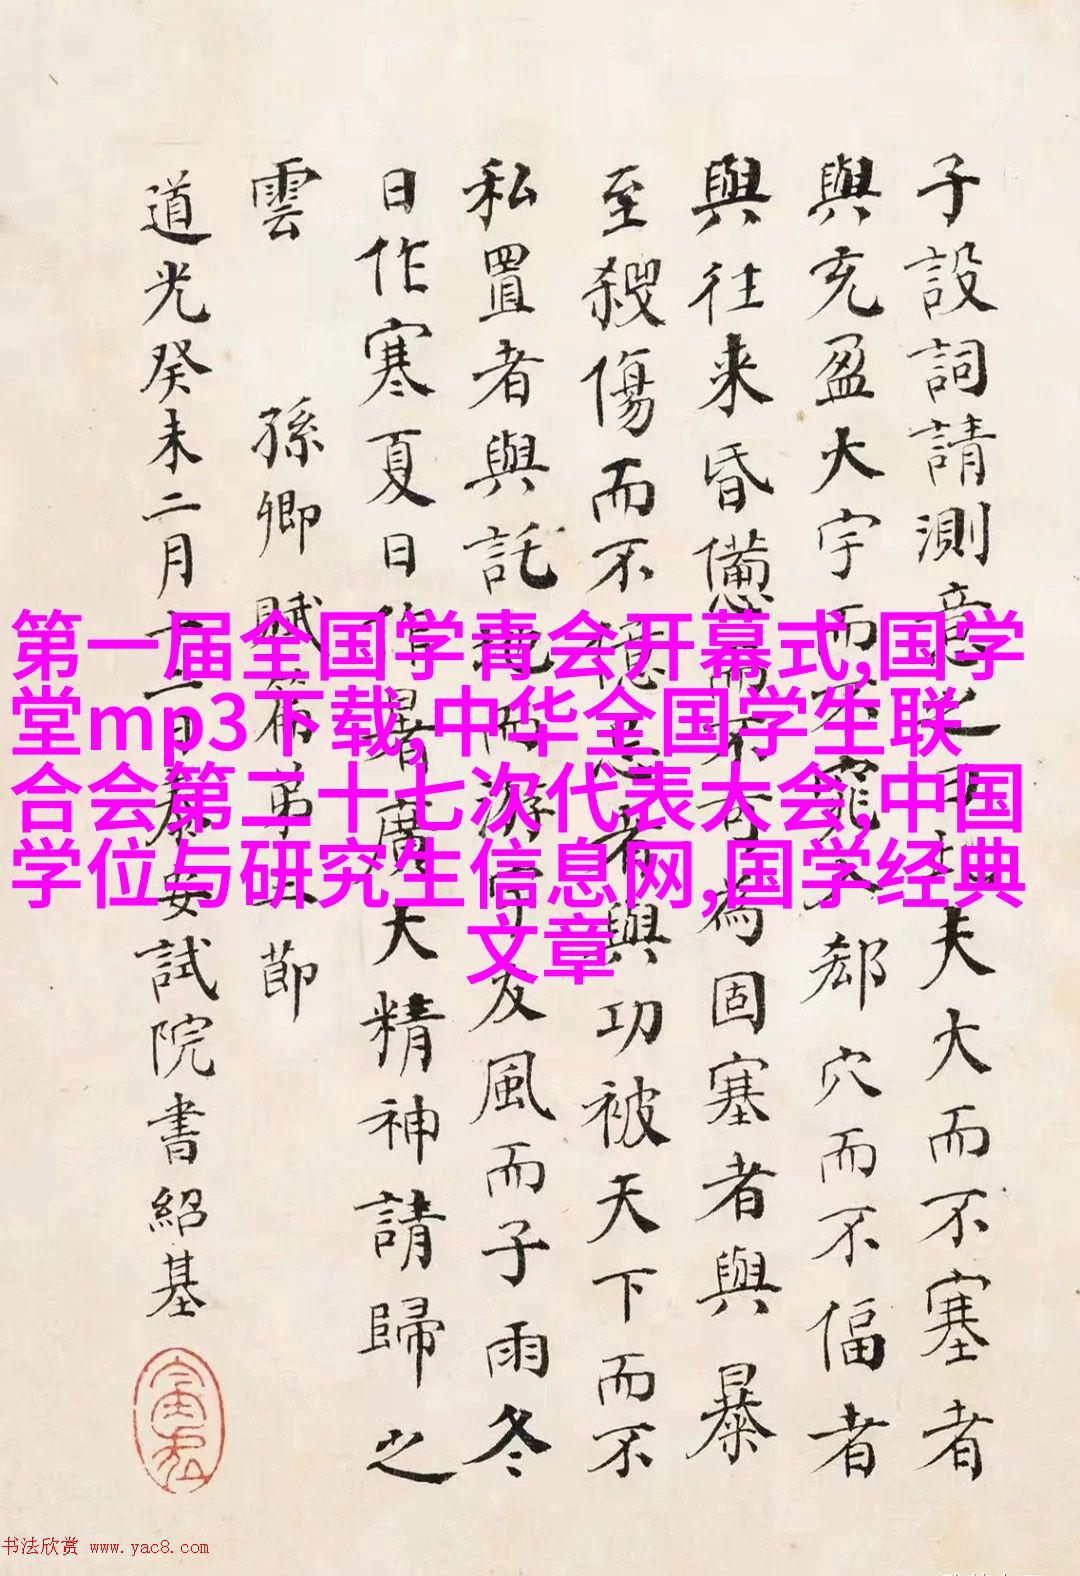 子設詞請測意之曰此夫大而不塞者
與充盈大宇而不窕入郄穴而不偪者
與往来昏憊而不可為固塞者與暴
至殺傷而不億忌者與功被天下而不
私置者與託地而游宇友風而子雨冬
日作寒夏日作暑廣大精神請歸之
雲 孫卿賦篇弟節
道光癸未二月十二日泰安試院書紹基
第一届全国学青会开幕式,国学
堂mp3下载,中华全国学生联
合会第二十七次代表大会,中国
学位与研究生信息网,国学经典
文章
书法欣赏 www.yac8.com